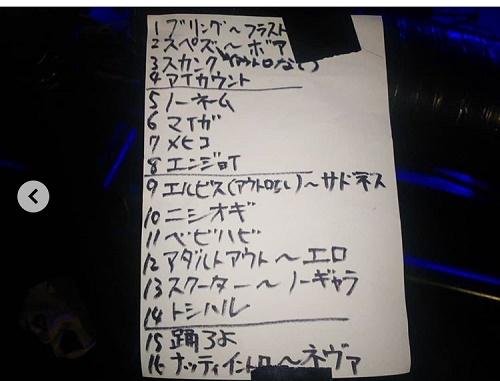 1 ブリング〜フラスト
2 スペズ〜ボア
3 スカンク(アウトロない)
4 アイカウント
5 ノーネーム
6 マイガ
7 メヒコ
8 エンジョイ
9 エルビス(アウトロない)〜サドネス
10 ニシオギ
11 ベビハビ
12 アダルトアウト〜エロ
13 スクーター〜ノーギャラ
14 トシハル
15 踊ろよ
16 ナッティイントロ〜ネヴァ